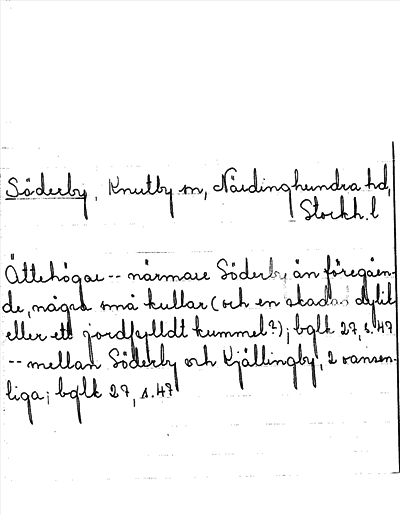 Söderby, Knutby sn, Närdinghundra hd,
Stockh. l
Ättehögar -- närmare Söderby än föregåen-
de, några små kullar (och en skadad dylik
eller ett jordfylldt kummel?); bglk 27, s. 47
-- mellan Söderby och Kjällingby, 2 vansen-
liga; bglk 27, s. 47